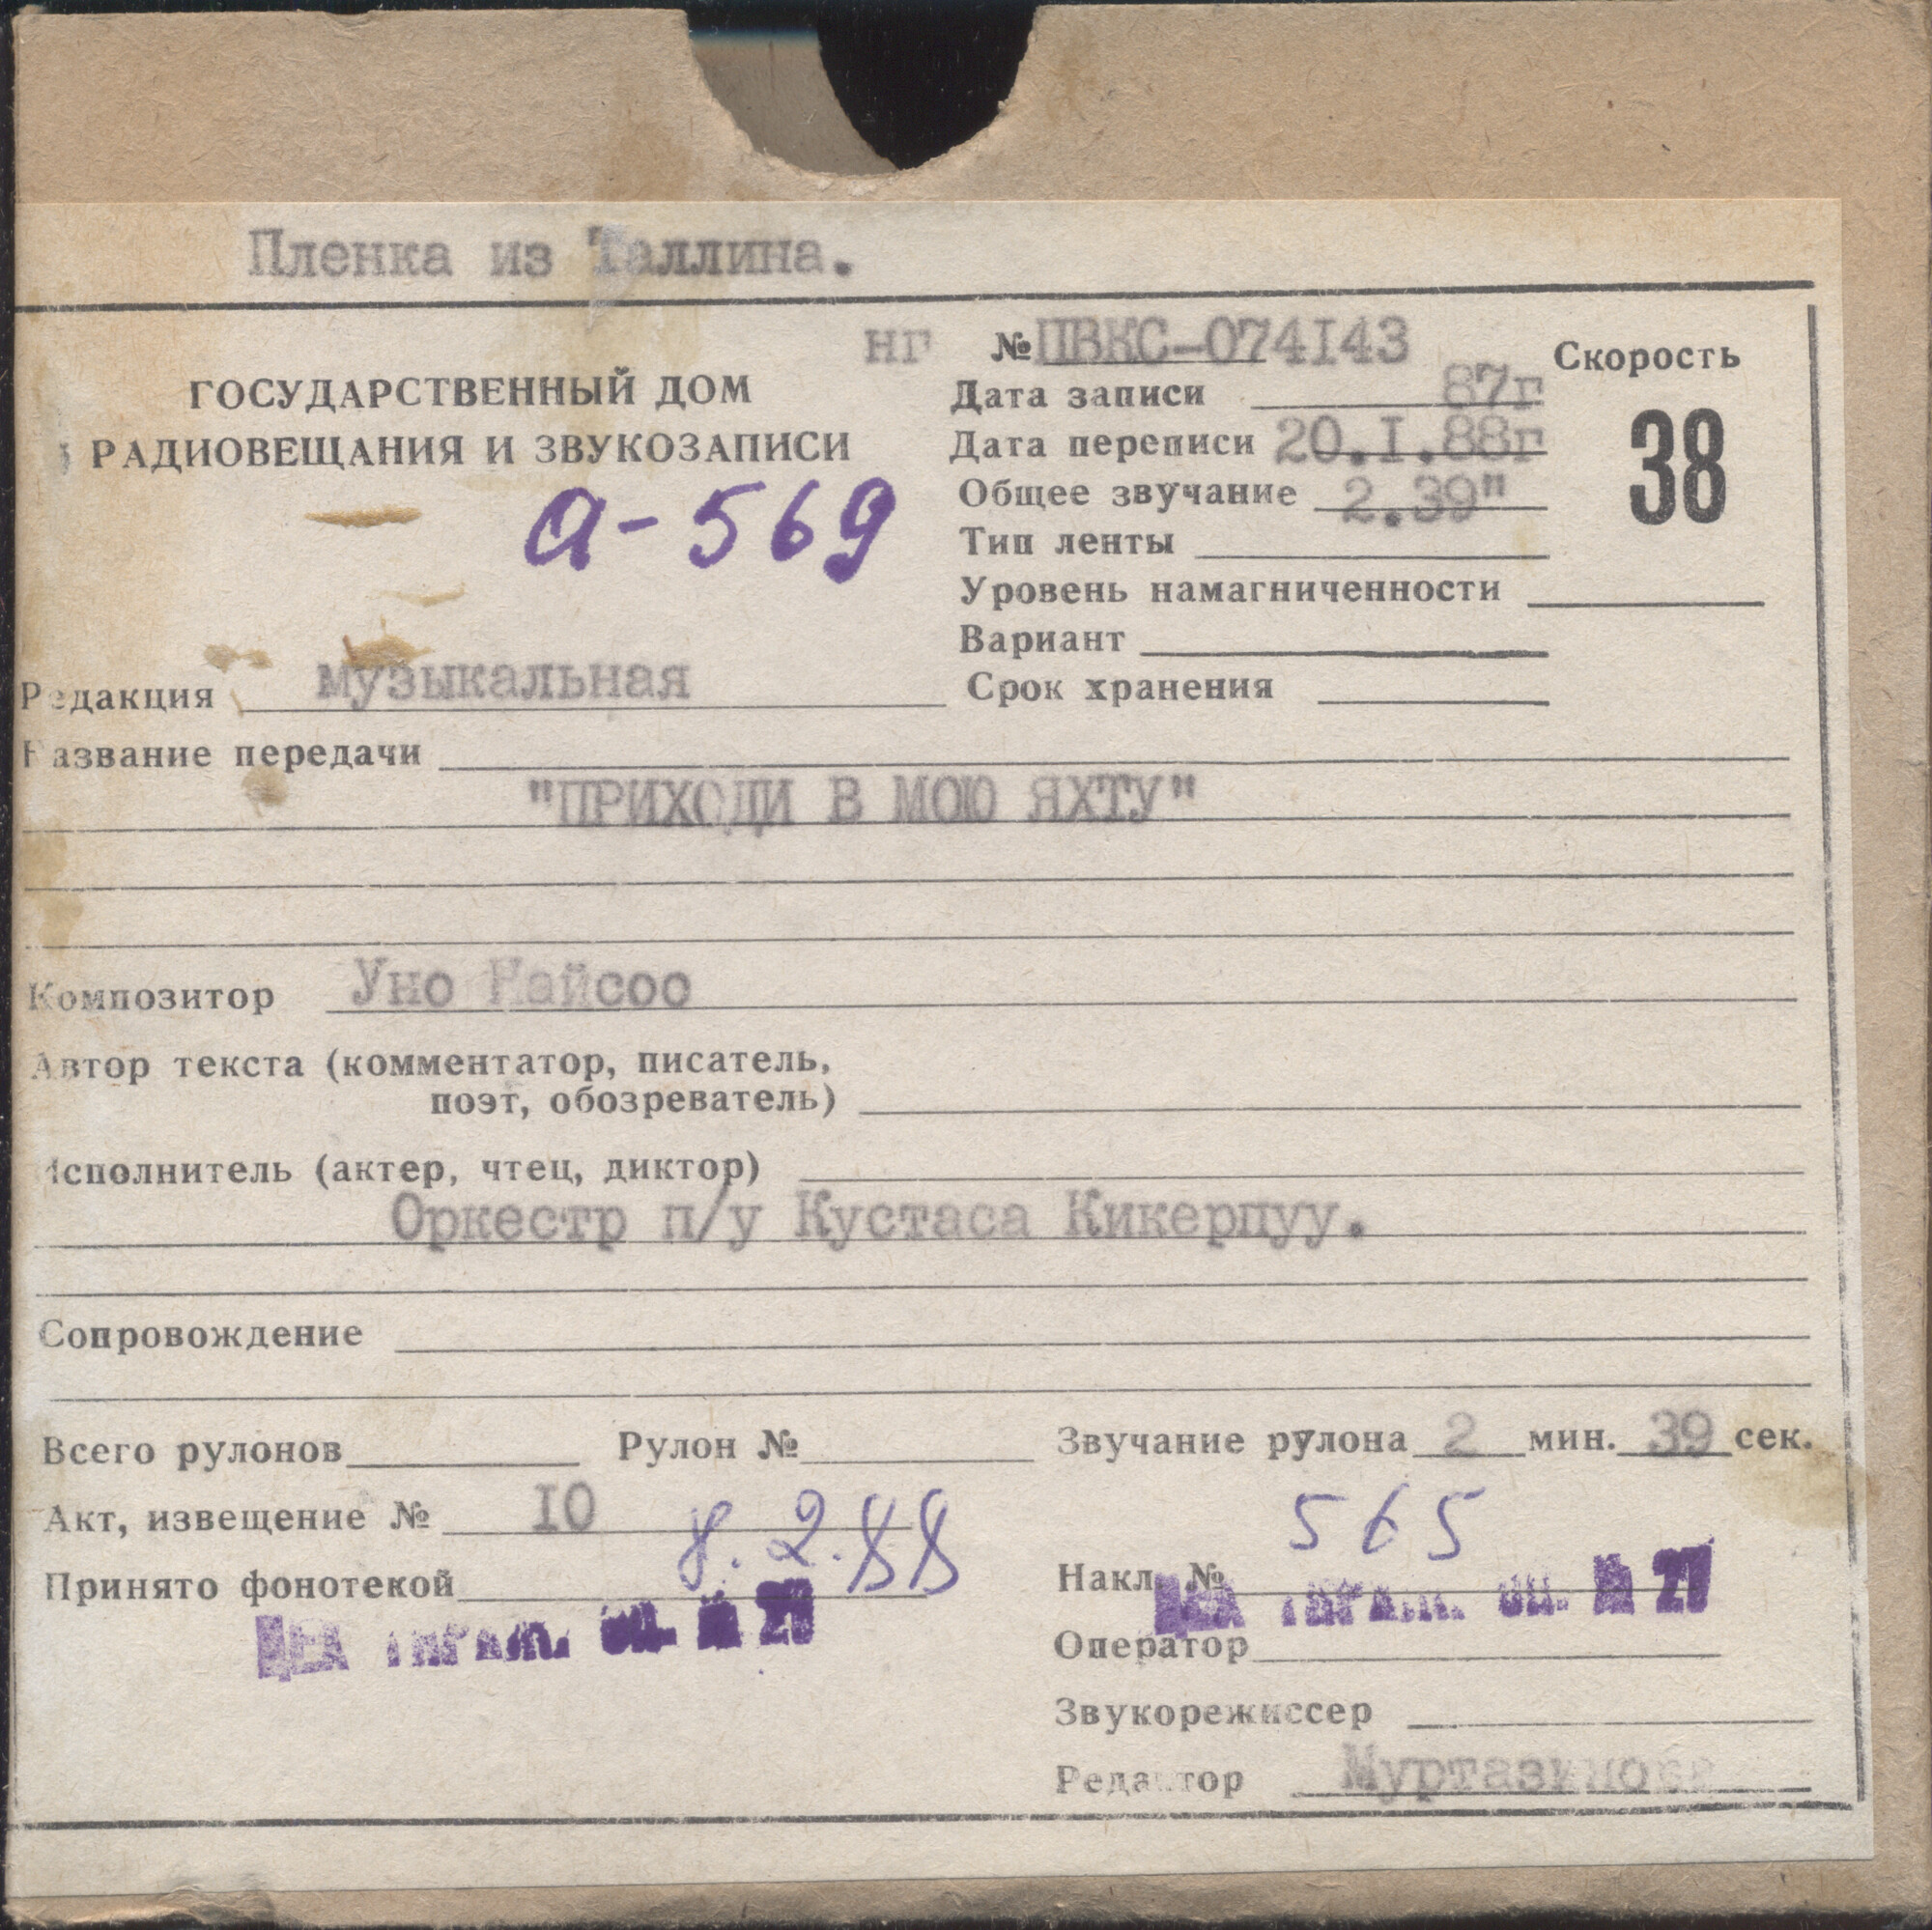 Пленка из Таллина.
нг № ПВКС-074I43
Скорость
ГОСУДАРСТВЕННЫЙ ДОМ
РАДИОВЕЩАНИЯ И ЗВУКОЗАПИСИ
Дата записи 87г
Дата переписи 20.I.88г
38
Общее звучание 2.39"
а-569
Тип ленты
Уровень намагниченности
Вариант
Редакция музыкальная
Срок хранения
Название передачи
"ПРИХОДИ В МОЮ ЯХТУ"
Композитор Уно Найсоо
Автор текста (комментатор, писатель,
поэт, обозреватель)
Исполнитель (актер, чтец, диктор)
Оркестр п/у Кустаса Кикерпуу.
Сопровождение
Всего рулонов Рулон № Звучание рулона 2 мин. 39 сек.
Акт, извещение № I0
8.2.88
565
Принято фонотекой
Накл. №
№ 27
№ 27
Оператор
Звукорежиссер
Редактор Муртазинова